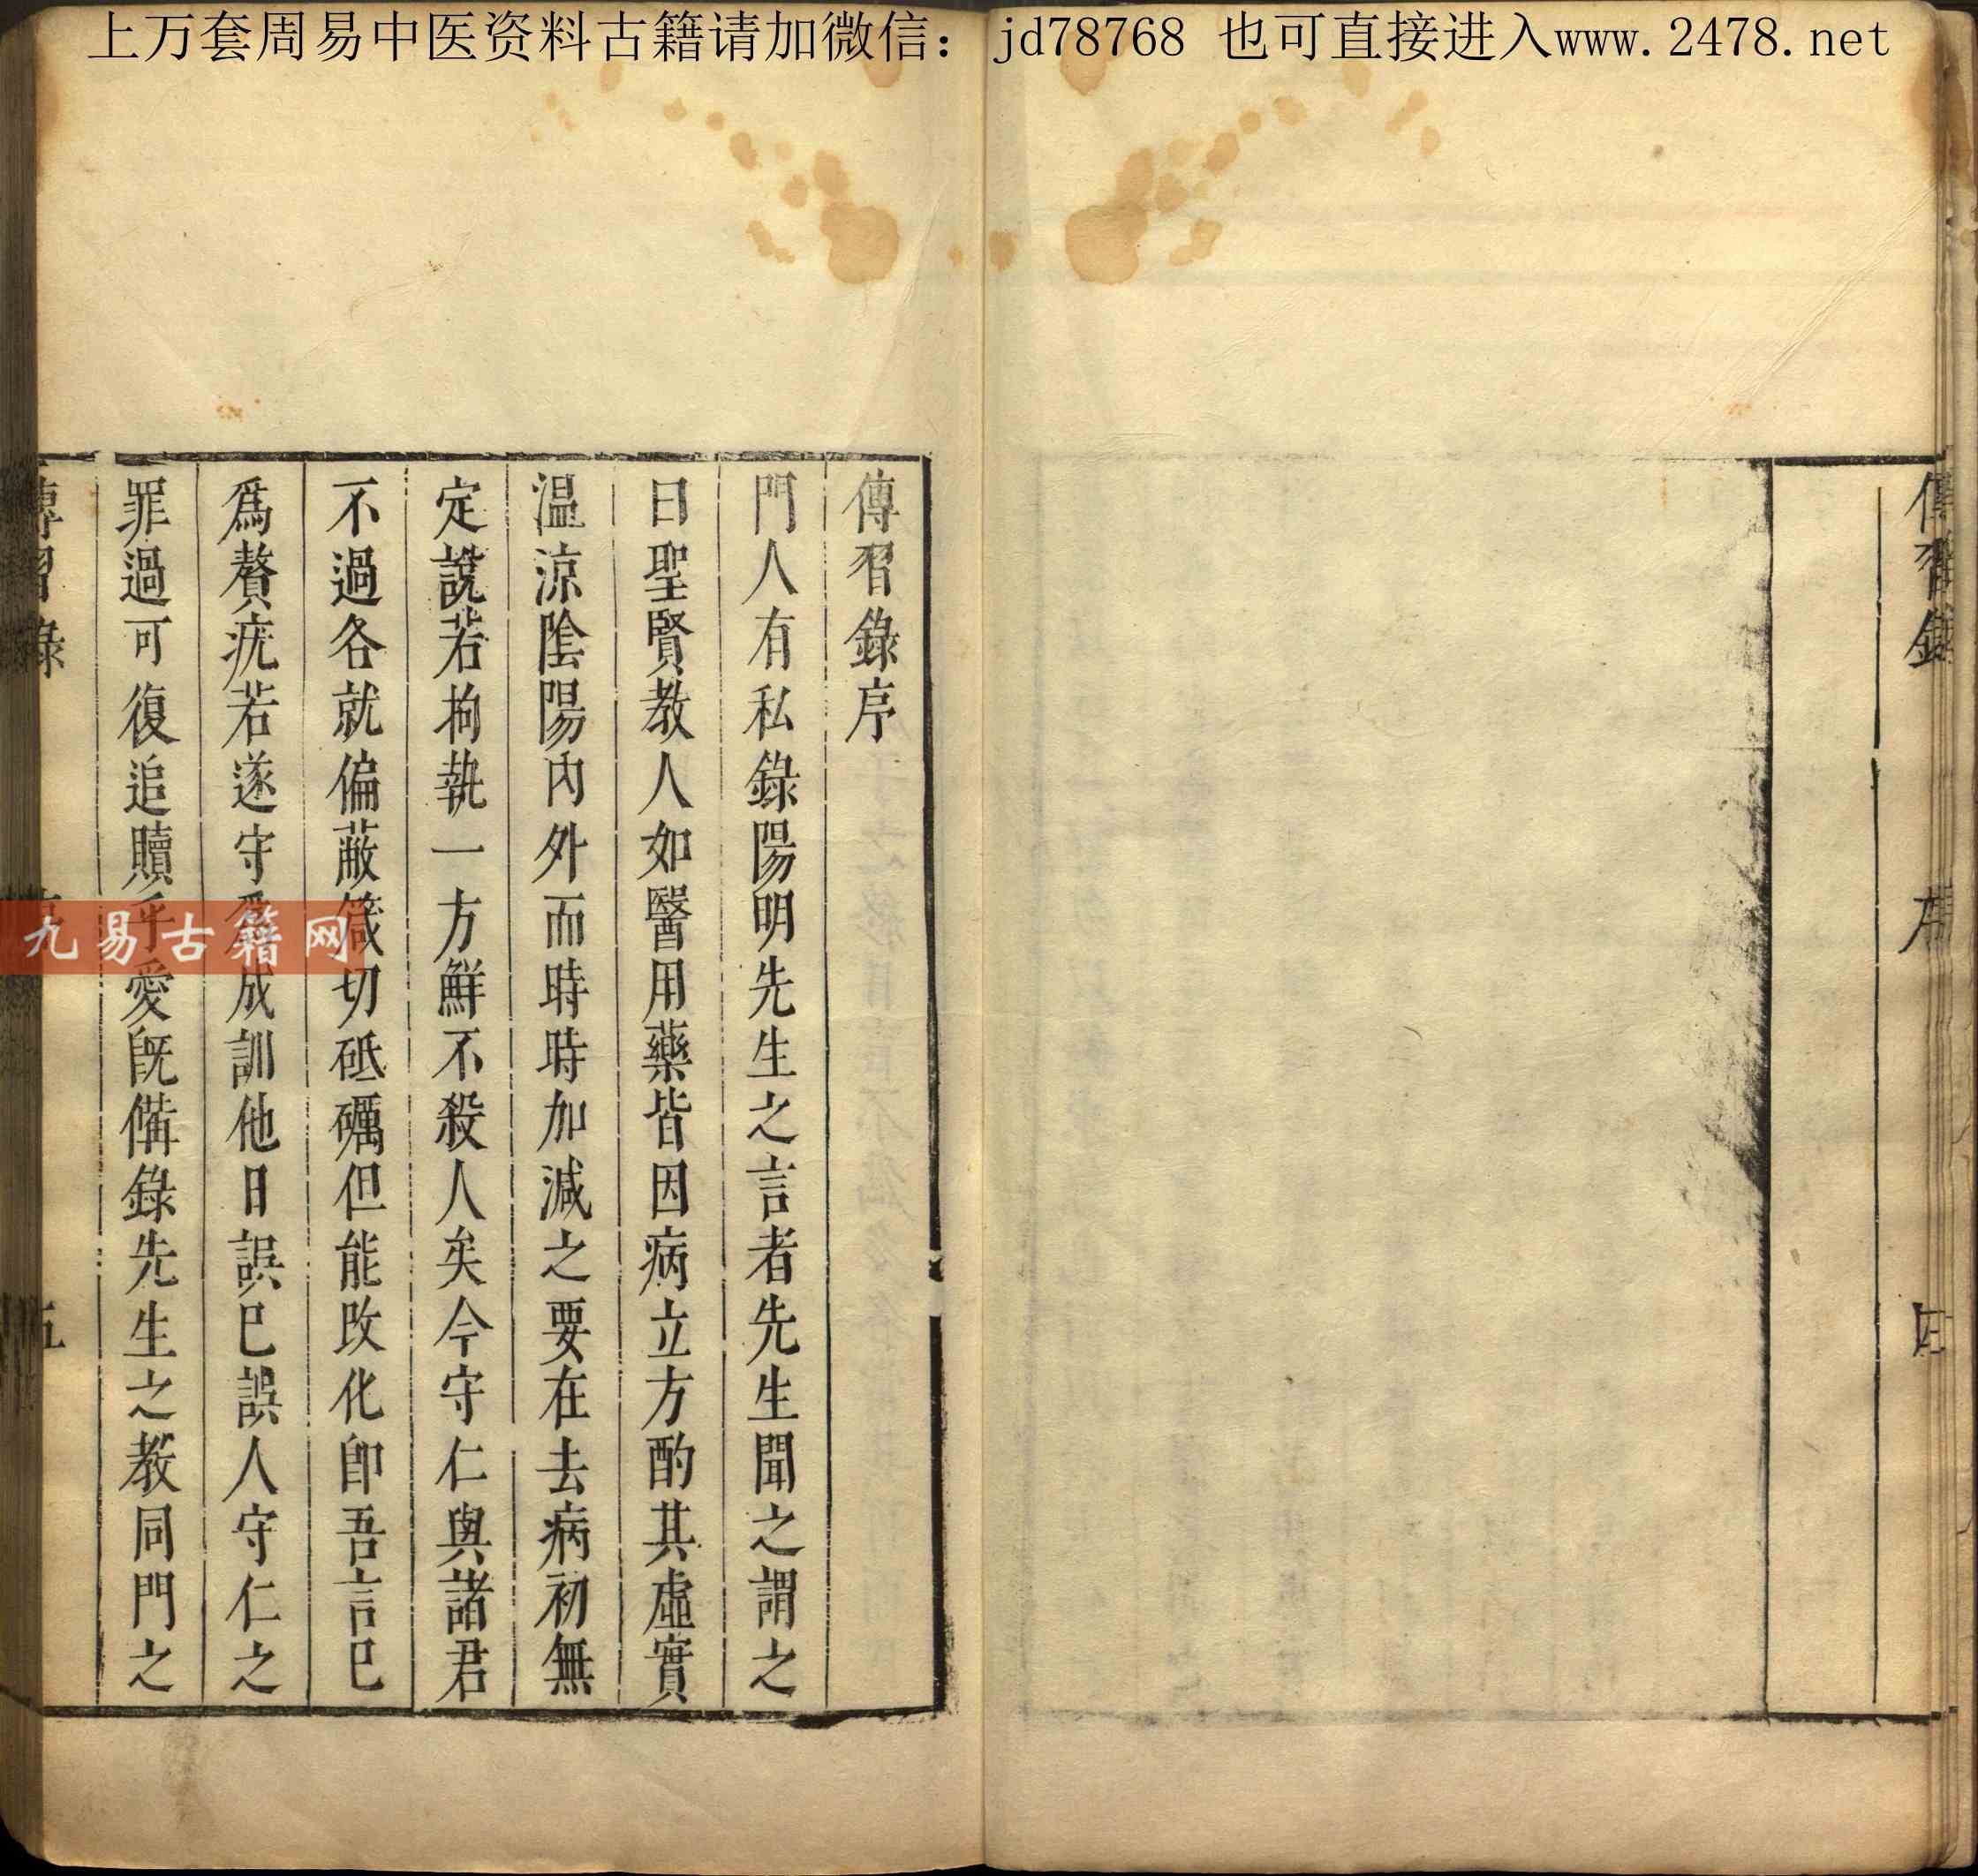 上万套周易中医资料古籍请加微信：jd78768 也可直接进入www.2478.net
傳習錄
序
四
傳習錄序
門人有私錄陽明先生之言者先生聞之謂之
曰聖賢教人如醫用藥皆因病立方酌其虛實
温涼陰陽內外而時時加減之要在去病初無
定說若拘執一方鮮不殺人矣今守仁與諸君
不過各就偏蔽箴切砥礪但能改化卽吾言已
爲贅疣若遂守爲成訓他日誤已誤人守仁之
罪過可復追贖乎愛旣備錄先生之教同門之
傳習錄
五
九易古籍网